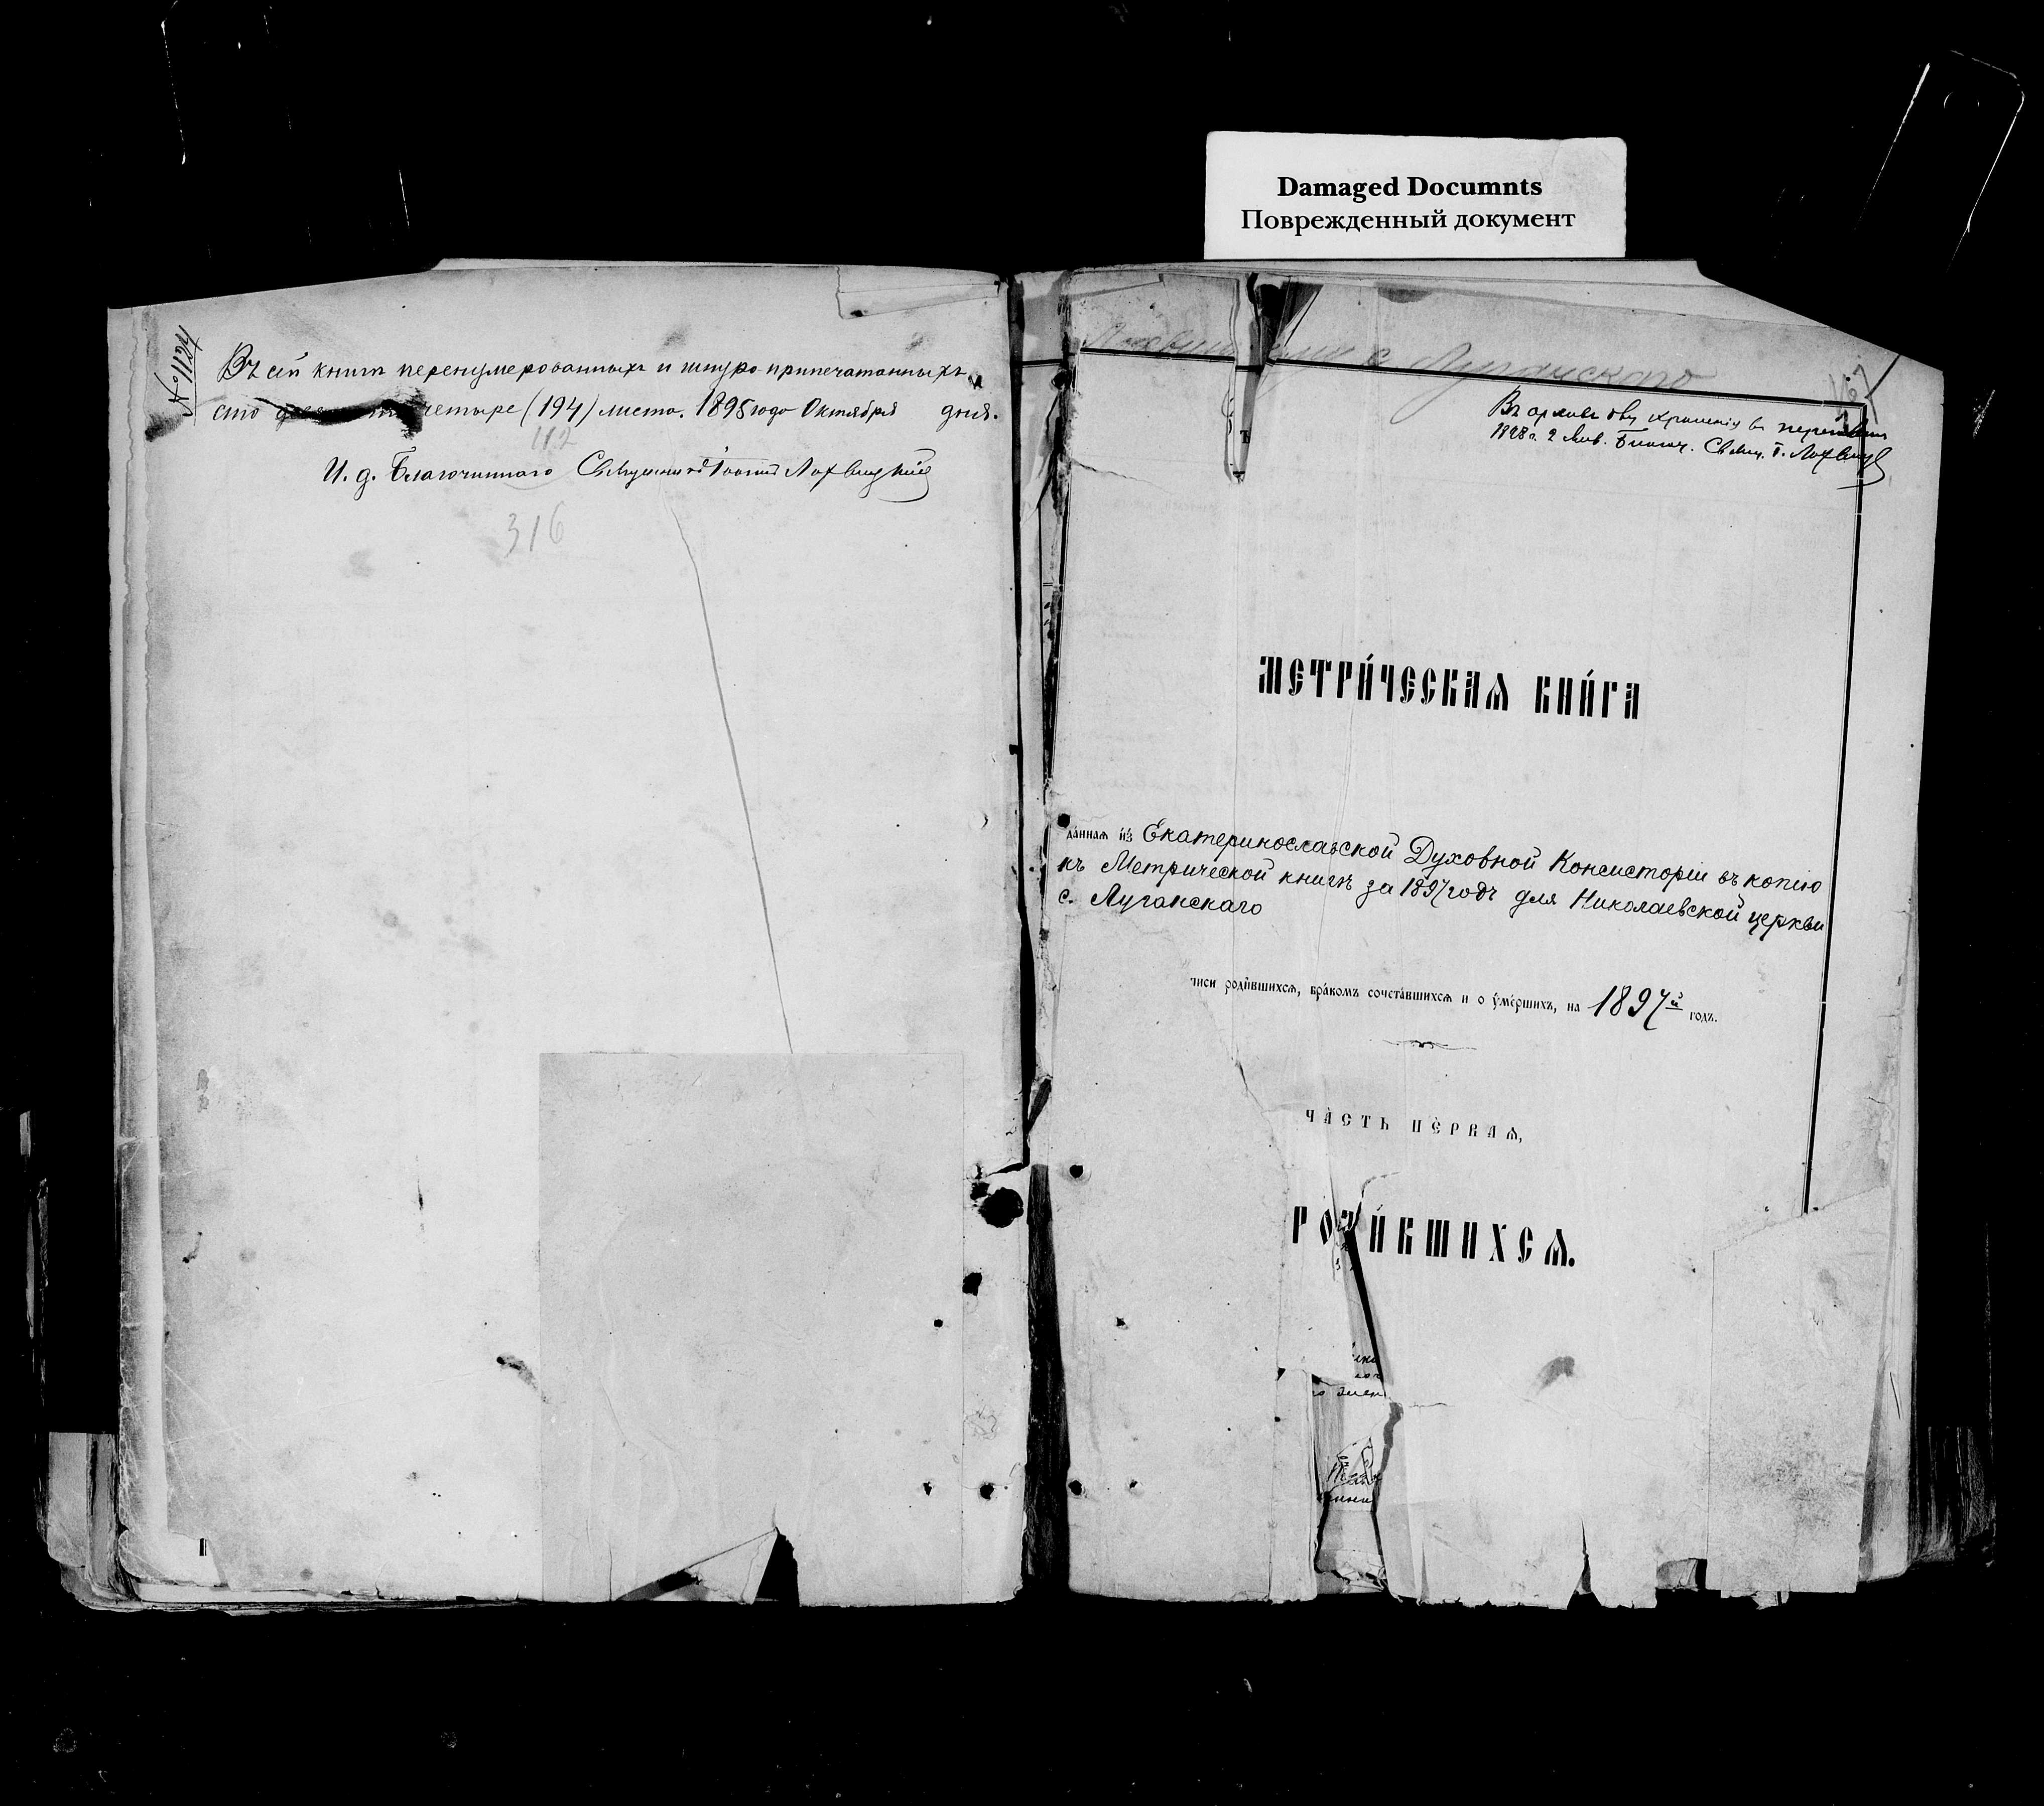 Damaged Documnts
Поврежденный документ
№ 1124
Въ сей книгѣ перенумерованныхъ и шнуро-припечатанныхъ
сто четыре (194) листа. 1895 года Октября дня.
112
И. д. Благочиннаго Священникъ Іоаннъ Лохвицкій
316
с. Луганскаго
167
Въ архивъ для храненія въ
1898 г. 2 Янв. Благоч. Свящ. І. Лохвиц
МЕТРИ́ЧЕСКАѦ КНИ́ГА
да́ннаѧ и́зъ Екатеринославской Духовной Консисторіи въ копію
къ Метрической книгѣ за 1897 годъ для Николаевской церкви
с. Луганскаго
роди́вшихсѧ, бра́комъ сочета́вшихсѧ и о у́ме́ршихъ, на 1897й годъ.
ЧА́СТЬ ПЕ́РВАѦ,
РОДИ́ВШИХСѦ.